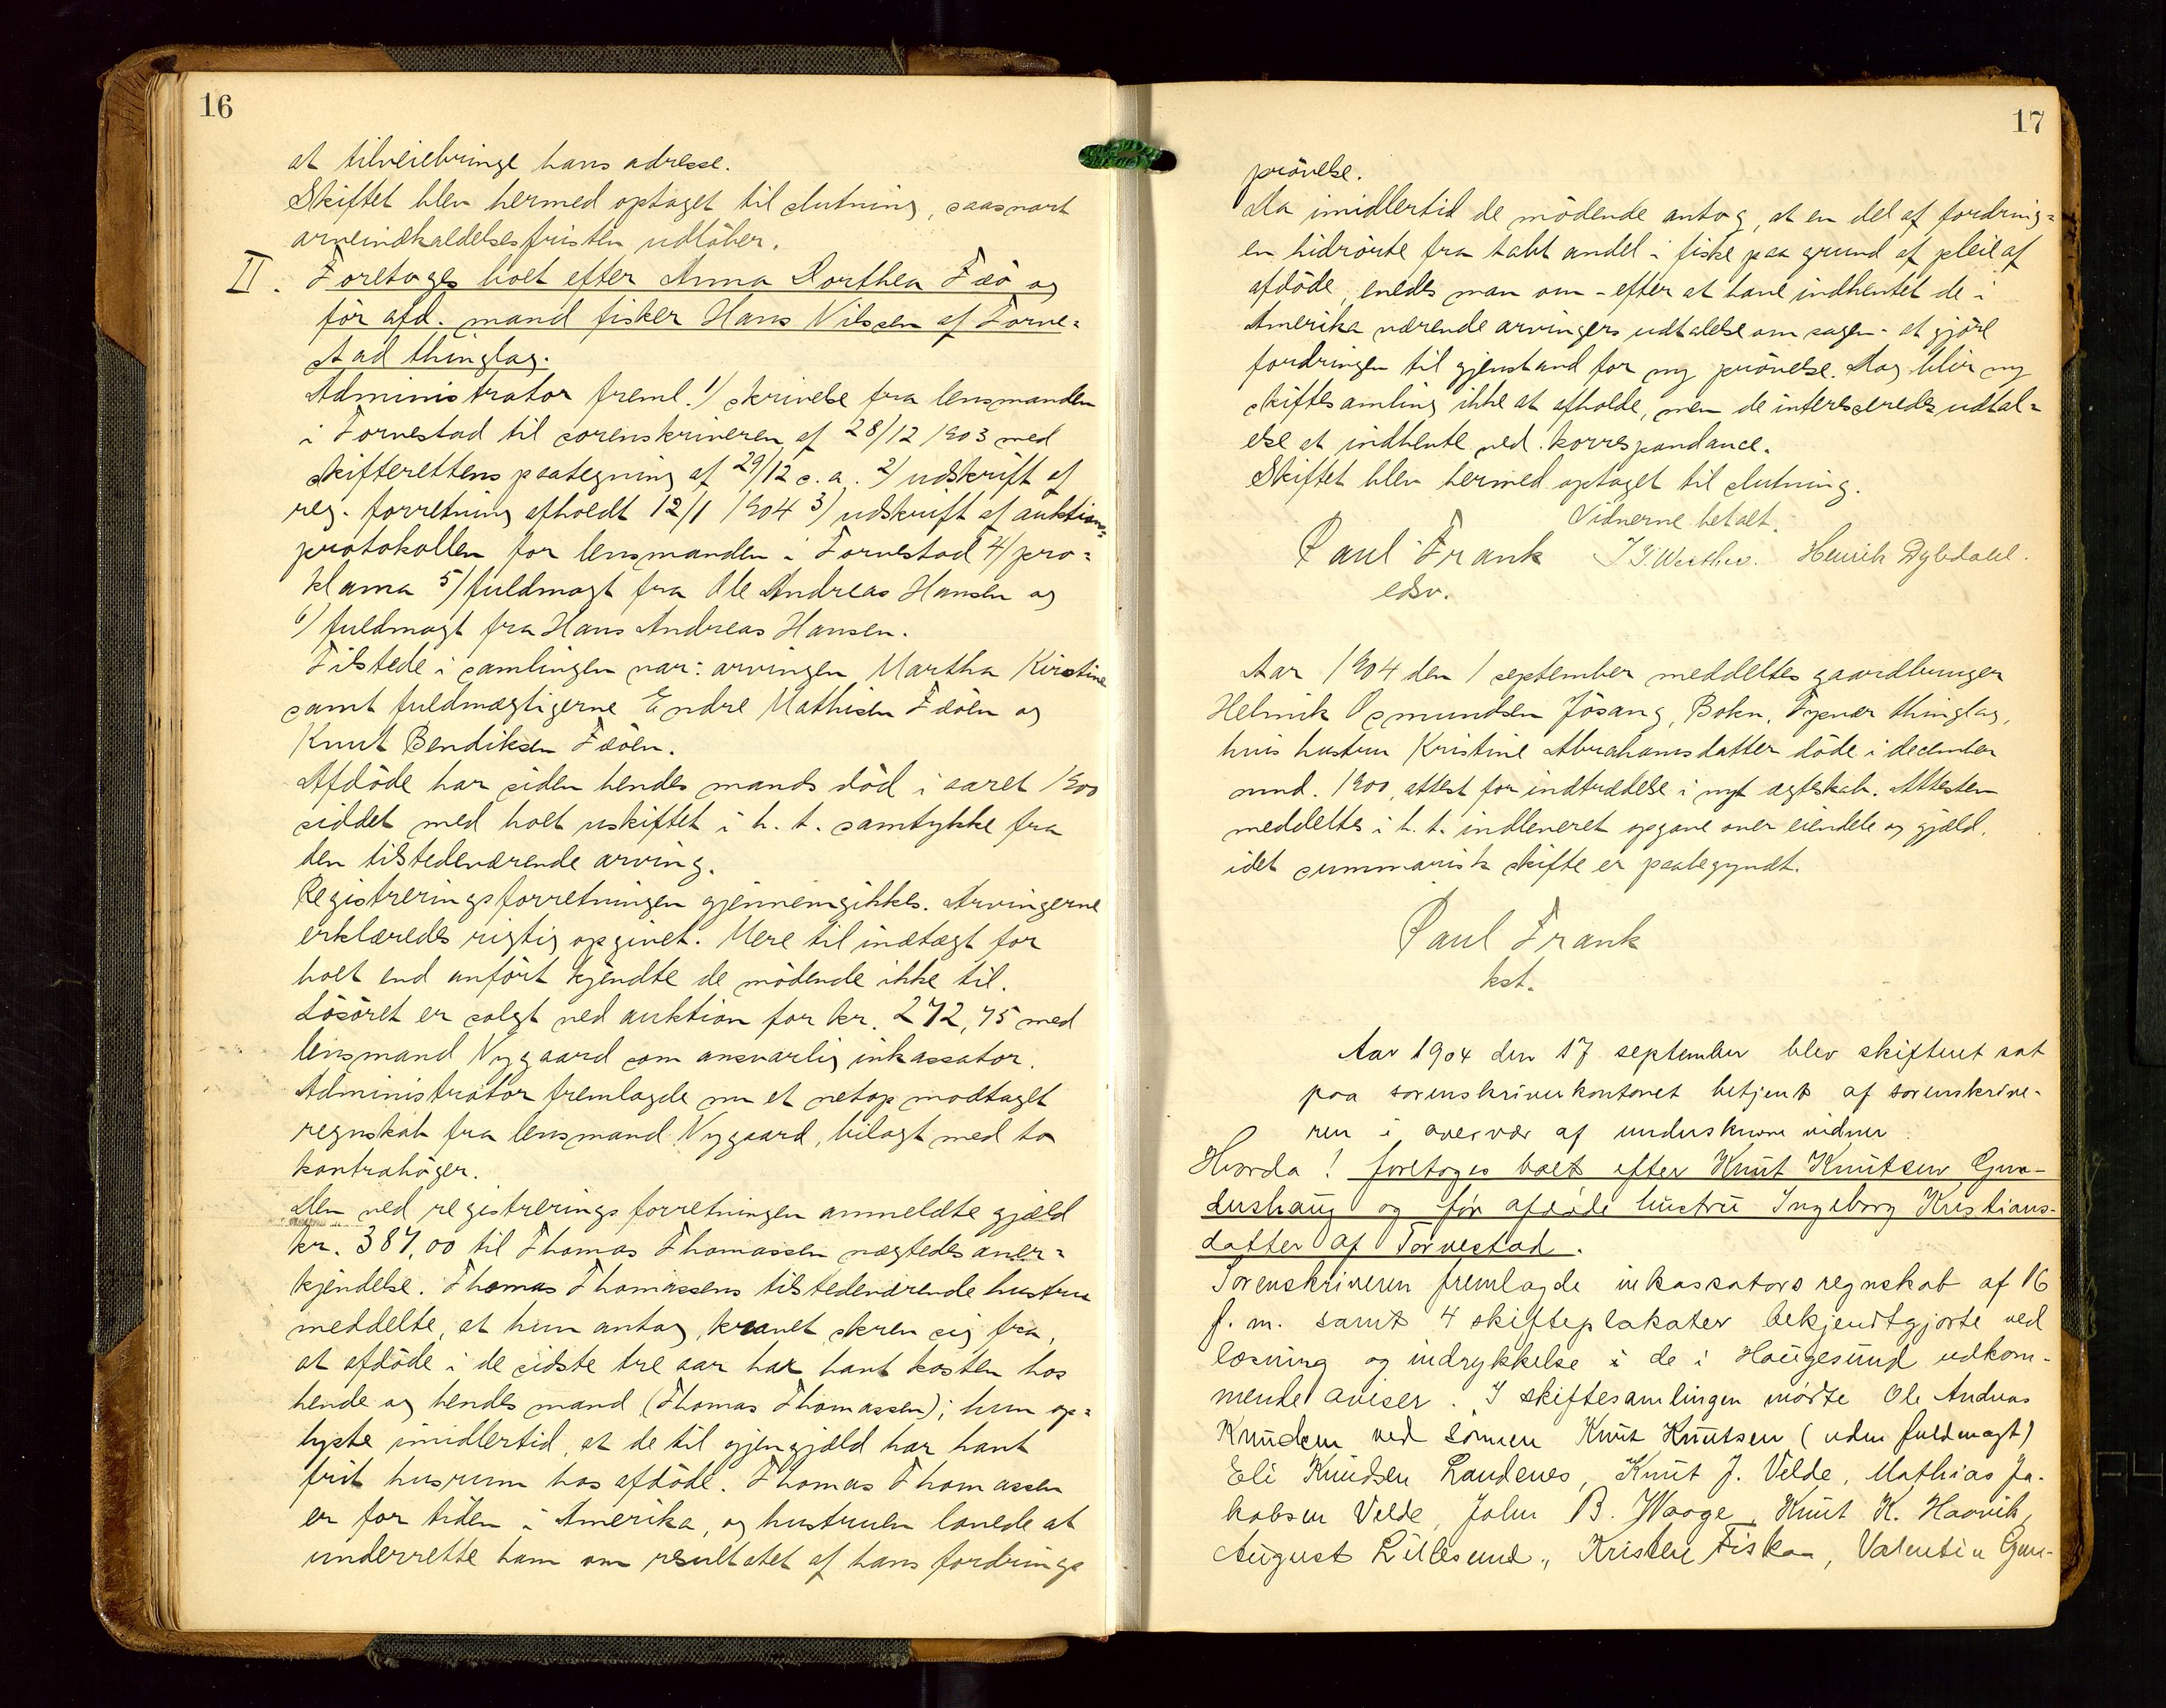 16
at tilveiebringe hans adresse.
Skiftet blev hermed optaget til slutning, saasnart
arveindkaldelsesfristen udløber.
II. Foretoges boet efter Anna Dorthea Fæø og
før afd. mand fisker Hans Nilsen af Torve=
stad thinglag.
Administrator freml. 1) skrivelse fra lensmanden
i Torvestad til sorenskriveren af 28/12 1903 med
skifterettens paategning af 29/12 s.a. 2) udskrift af
reg. forretning afholdt 12/1 1904 3) udskrift af auktions=
protokollen for lensmanden i Torvestad 4) pro=
klama 5) fuldmagt fra Ole Andreas Hansen og
6) fuldmagt fra Hans Andreas Hansen.
Tilstede i samlingen var: arvingen Martha Kirstine
samt fuldmægtigerne Endre Mathisen Fæøen og
Knut Bendiksen Fæøen.
Afdøde har siden hendes mands død i aaret 1900
siddet med boet uskiftet i h. t. samtykke fra
den tilstedeværende arving.
Registreringsforretningen gjennemgikkes. Arvingerne
erklæredes rigtig opgivet. Mere til indtægt for
boet end anført kjendte de mødende ikke til.
Løsøret er solgt ved auktion for kr. 272,75 med
lensmand Nygaard som ansvarlig inkassator.
Administrator fremlagde nu et netop modtaget
regnskab fra lensmand Nygaard, bilagt med to
kontrabøger.
Den ved registreringsforretningen anmeldte gjæld
kr. 387,00 til Thomas Thomassen nægtedes aner=
kjendelse. Thomas Thomassens tilstedeværende hustru
meddelte, at hun antog kravet skrev sig fra,
at afdøde i de sidste tre aar har havt kosten hos
hende og hendes mand (Thomas Thomassen); hun op=
lyste imidlertid, at de til gjengjæld har havt
frit husrum hos afdøde. Thomas Thomassen
er for tiden i Amerika, og hustruen lovede at
underrette ham om resultatet af hans fordrings
17
prøvelse.
Da imidlertid de mødende antog, at en del af fordring=
en hidrørte fra tabt andel i fiske paa grund af pleie af
afdøde, enedes man om - efter at have indhentet de i
Amerika værende arvingers udtalelse om sagen - at gjøre
fordringen til gjenstand for ny prøvelse. Dog blir ny
skiftesamling ikke at afholde, men de interesseredes udtal=
else at indhente ved korrespondance.
Skiftet blev hermed optaget til slutning.
Vidnerne betalt.
Paul Frank Henrik Dybdahl.
edsv.
Aar 1904 den 1 september meddeltes gaardbruger
Helmik Osmundsen Jøsang, Bokn, Tysvær thinglag,
hvis hustru Kristine Abrahamsdatter døde i december
mnd. 1900, attest for indtrædelse i nyt ægteskab. Attesten
meddeltes i h. t. indleveret opgave over eiendele og gjæld,
idet summarisk skifte er paabegyndt.
Paul Frank
kst.
Aar 1904 den 17 september blev skifteret sat
paa sorenskriverkontoret betjent af sorenskrive-
ren i overvær af underskrevne vidner.
Hvorda! foretoges boet efter Knut Knutsen Gun-
dershaug og før afdøde hustru Ingeborg Kristians-
datter af Torvestad.
Sorenskriveren fremlagde inkassators regnskab af 16
f. m. samt 4 skifteplakater bekjendtgjorte ved
læsning og indrykkelse i de i Haugesund udkom-
mende aviser. I skiftesamlingen mødte Ole Andreas
Knudsen ved sønnen Knut Knutsen (uden fuldmagt)
Eli Knudsen Landenes, Knut J. Velde, Mathias Ja-
kobsen Velde, John B. Waage, Knut K. Haavik,
August Lillesund, Kristen Fiskaa, Valentin Gun-